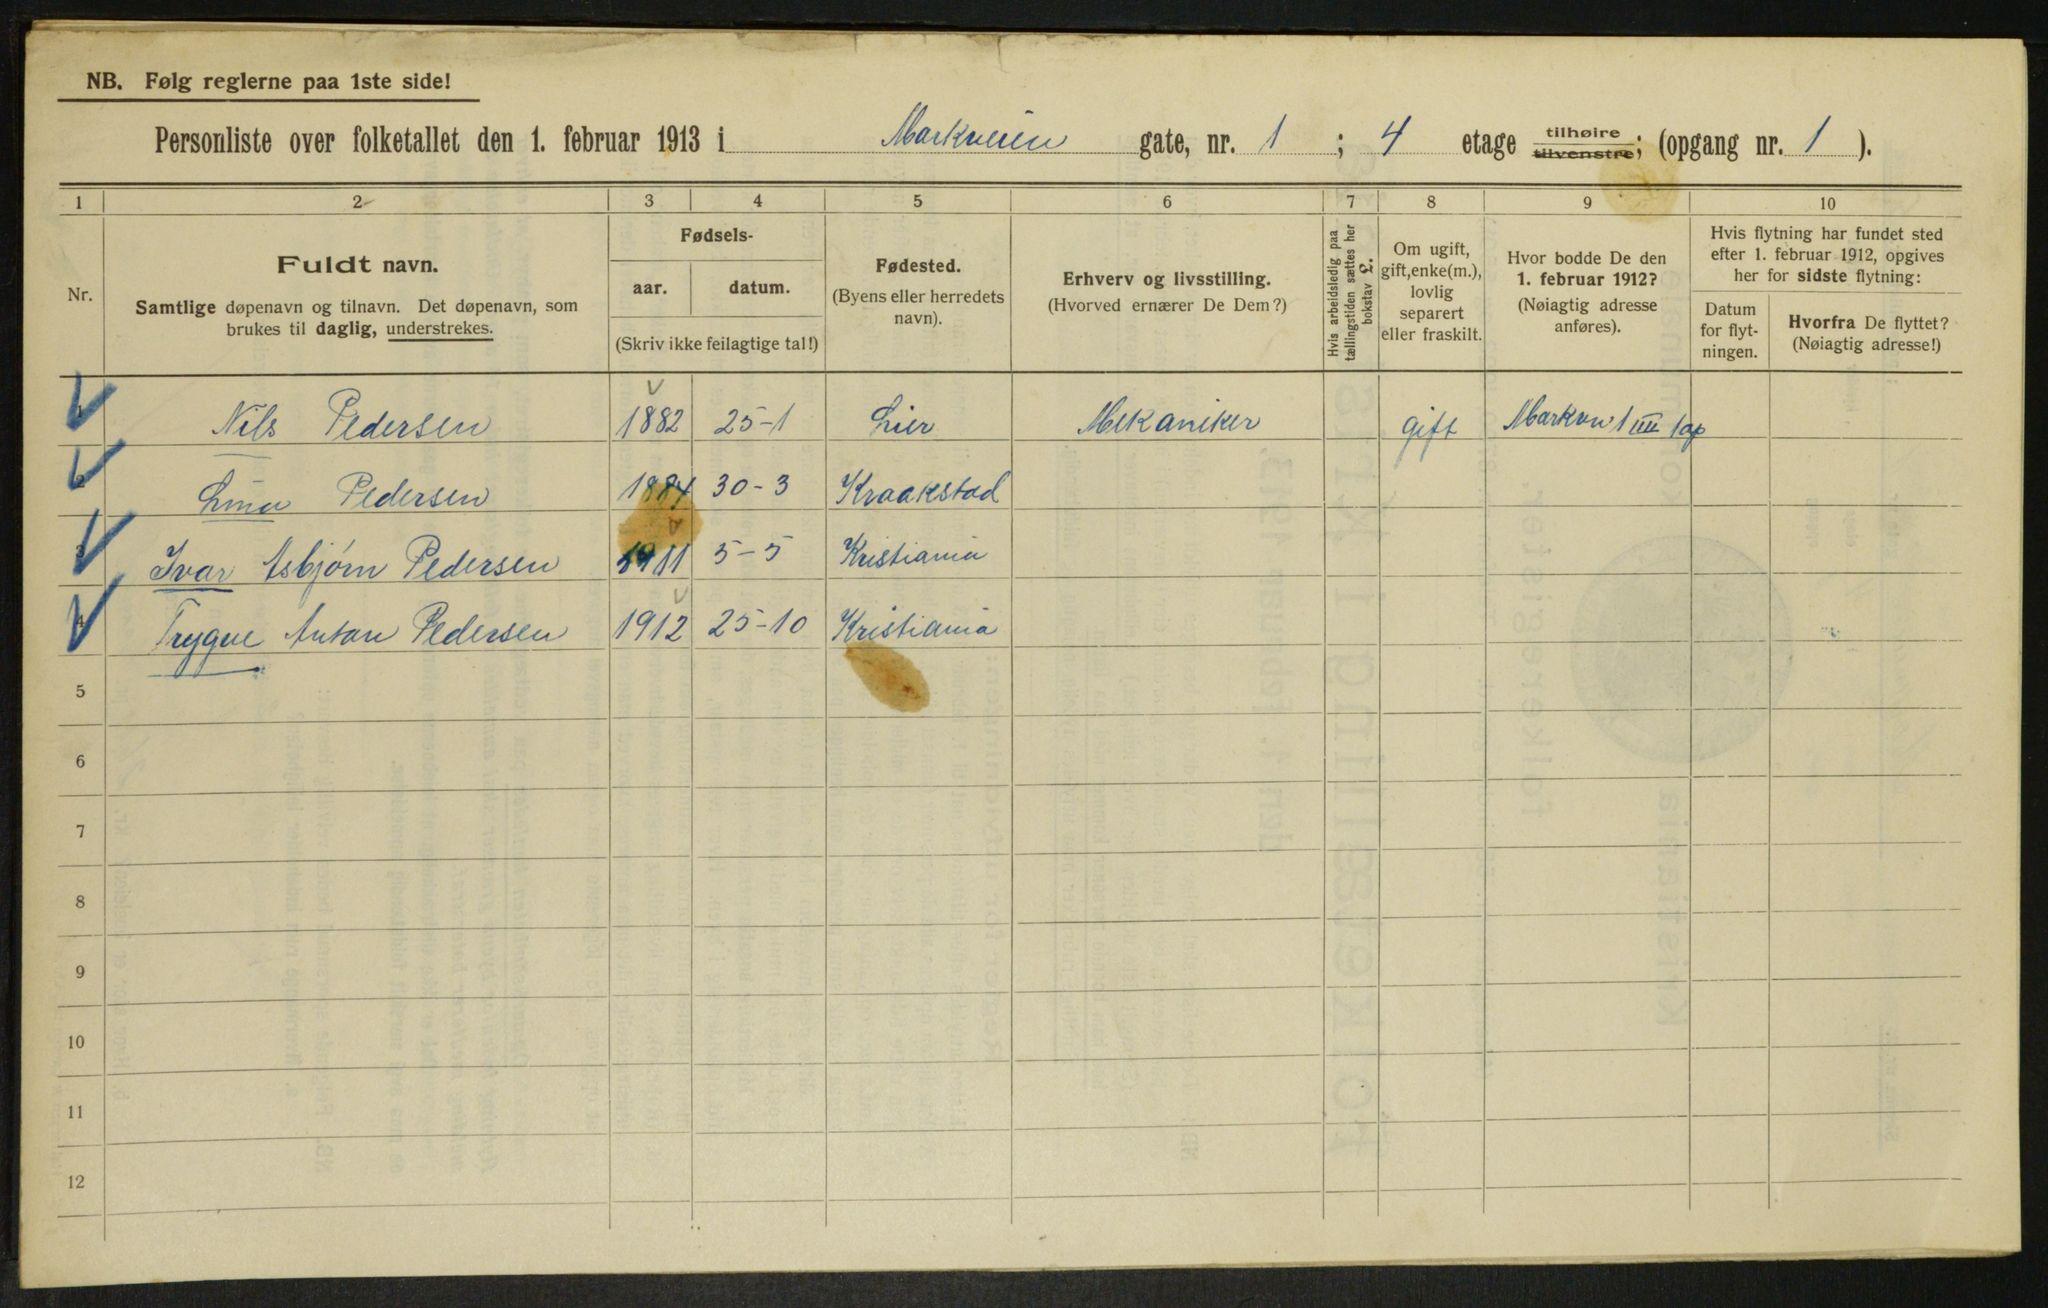 NB. Følg reglerne paa 1ste side!
Personliste over folketallet den 1. februar 1913 i Markveien gate, nr. 1 ; 4 etage tilhøire tilvenstre; (opgang nr. 1 ).
1 2 3 4 5 6 7 8 9 10
Nr.
Fuldt navn.
Samtlige døpenavn og tilnavn. Det døpenavn, som
brukes til daglig, understrekes.
Fødsels-
aar. datum.
(Skriv ikke feilagtige tal!)
Fødested.
(Byens eller herredets
navn).
Erhverv og livsstilling.
(Hvorved ernærer De Dem?)
Hvis arbeidsledig paa
tællingstiden sættes her
bokstav L.
Om ugift,
gift, enke(m.),
lovlig
separert
eller fraskilt.
Hvor bodde De den
1. februar 1912?
(Nøiagtig adresse
anføres).
Hvis flytning har fundet sted
efter 1. februar 1912, opgives
her for sidste flytning:
Datum
for flyt-
ningen.
Hvorfra De flyttet?
(Nøiagtig adresse!)
1 Nils Pedersen 1882 25-1 Lier Mekaniker gift Markvn 1 IIII 1 op
2 Lina Pedersen 1884 30-3 Kraakstad
3 Ivar Asbjørn Pedersen 1911 5-5 Kristiania
4 Trygve Anton Pedersen 1912 25-10 Kristiania
5
6
7
8
9
10
11
12